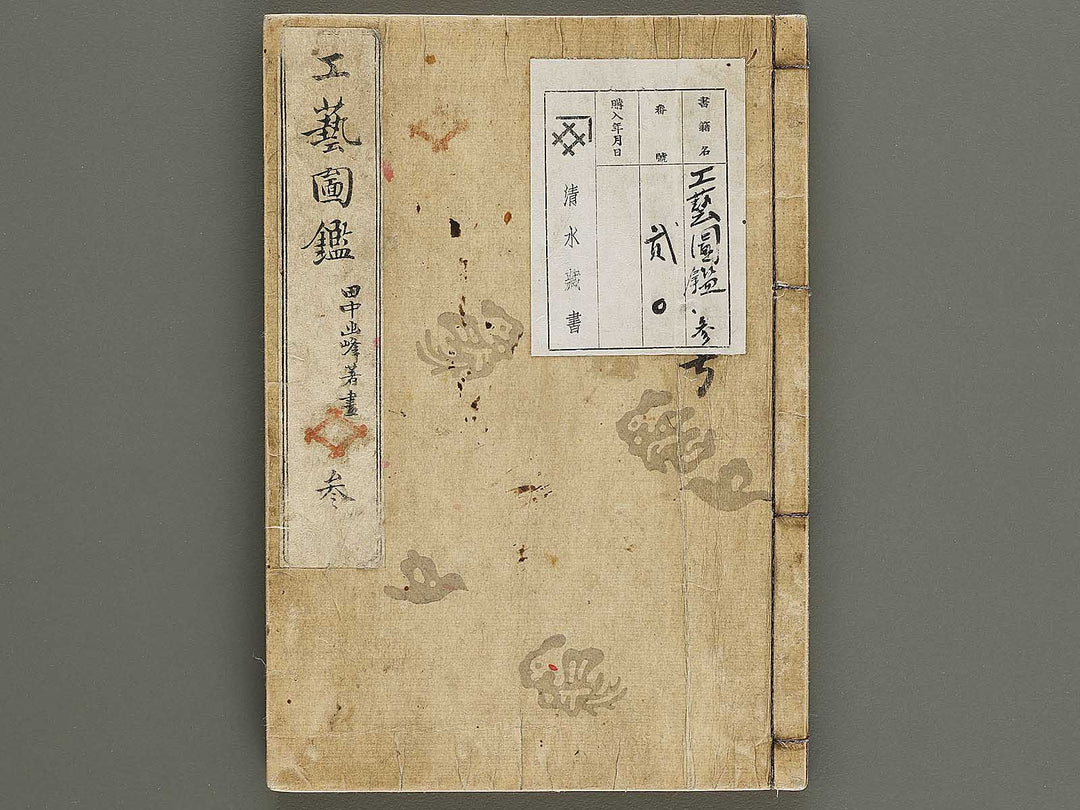 工藝圖鑑
田中幽峰著畫
参
書籍名
工藝圖鑑
参
番號
貳〇
購入年月日
清水藏書